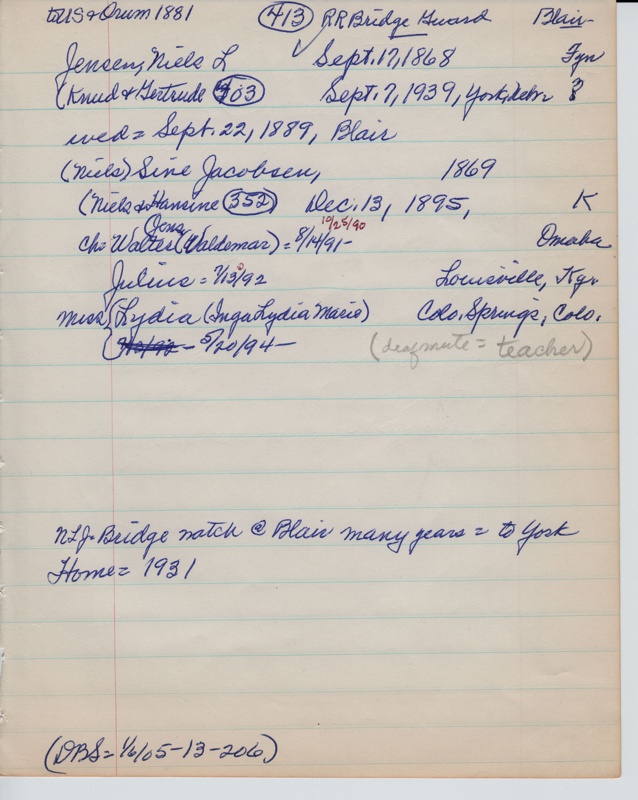 to US & Orum 1881 413 RR Bridge Guard Blair
Jensen, Niels L Sept. 17, 1868 Fyn
(Knud & Gertrude 403) Sept. 7, 1939, York, Nebr ?
wed = Sept. 22, 1889, Blair
(Niels) Sine Jacobsen, 1869
(Niels & Hansine 352) Dec. 13, 1895, K
Jens 10/25/90
Ch: Walter (Waldemar) = 8/14/91- Omaha
Julius = 7/13/92 Louisville, Ky.
Miss Lydia (Inga Lydia Marie) Colo. Springs, Colo.
5/20/94- (deafmute = teacher)
NLJ = Bridge watch @ Blair many years = to York
Home = 1931
(DBS = 1/6/05-13-206)